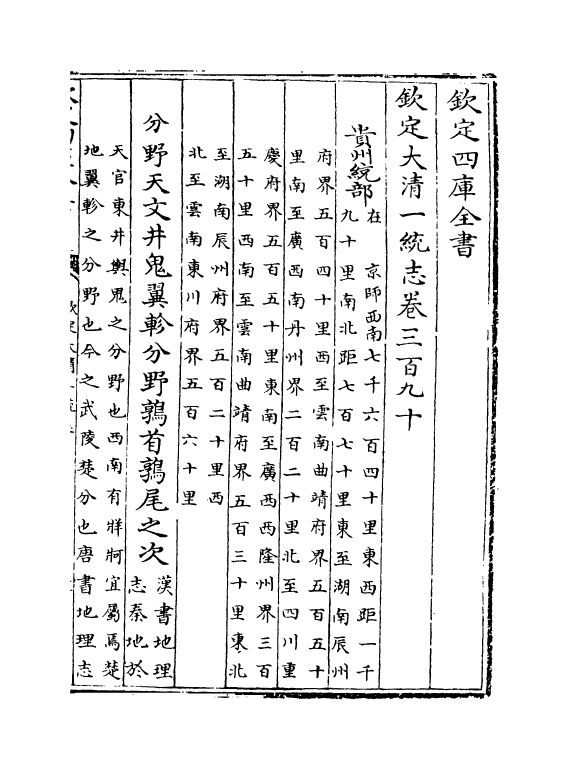 欽定四庫全書
欽定大清一統志卷三百九十
貴州統部
在　京師西南七千六百四十里東西距一千
九十里南北距七百七十里東至湖南辰州
府界五百四十里西至雲南曲靖府界五百五十
里南至廣西南丹州界二百二十里北至四川重
慶府界五百五十里東南至廣西西隆州界三百
五十里西南至雲南曲靖府界五百三十里東北
至湖南辰州府界五百二十里西
北至雲南東川府界五百六十里
分野天文井鬼翼軫分野鶉首鶉尾之次
漢書地理
志秦地於
天官東井輿鬼之分野也西南有牂牁宜屬焉楚
地翼軫之分野也今之武陵楚分也唐書地理志